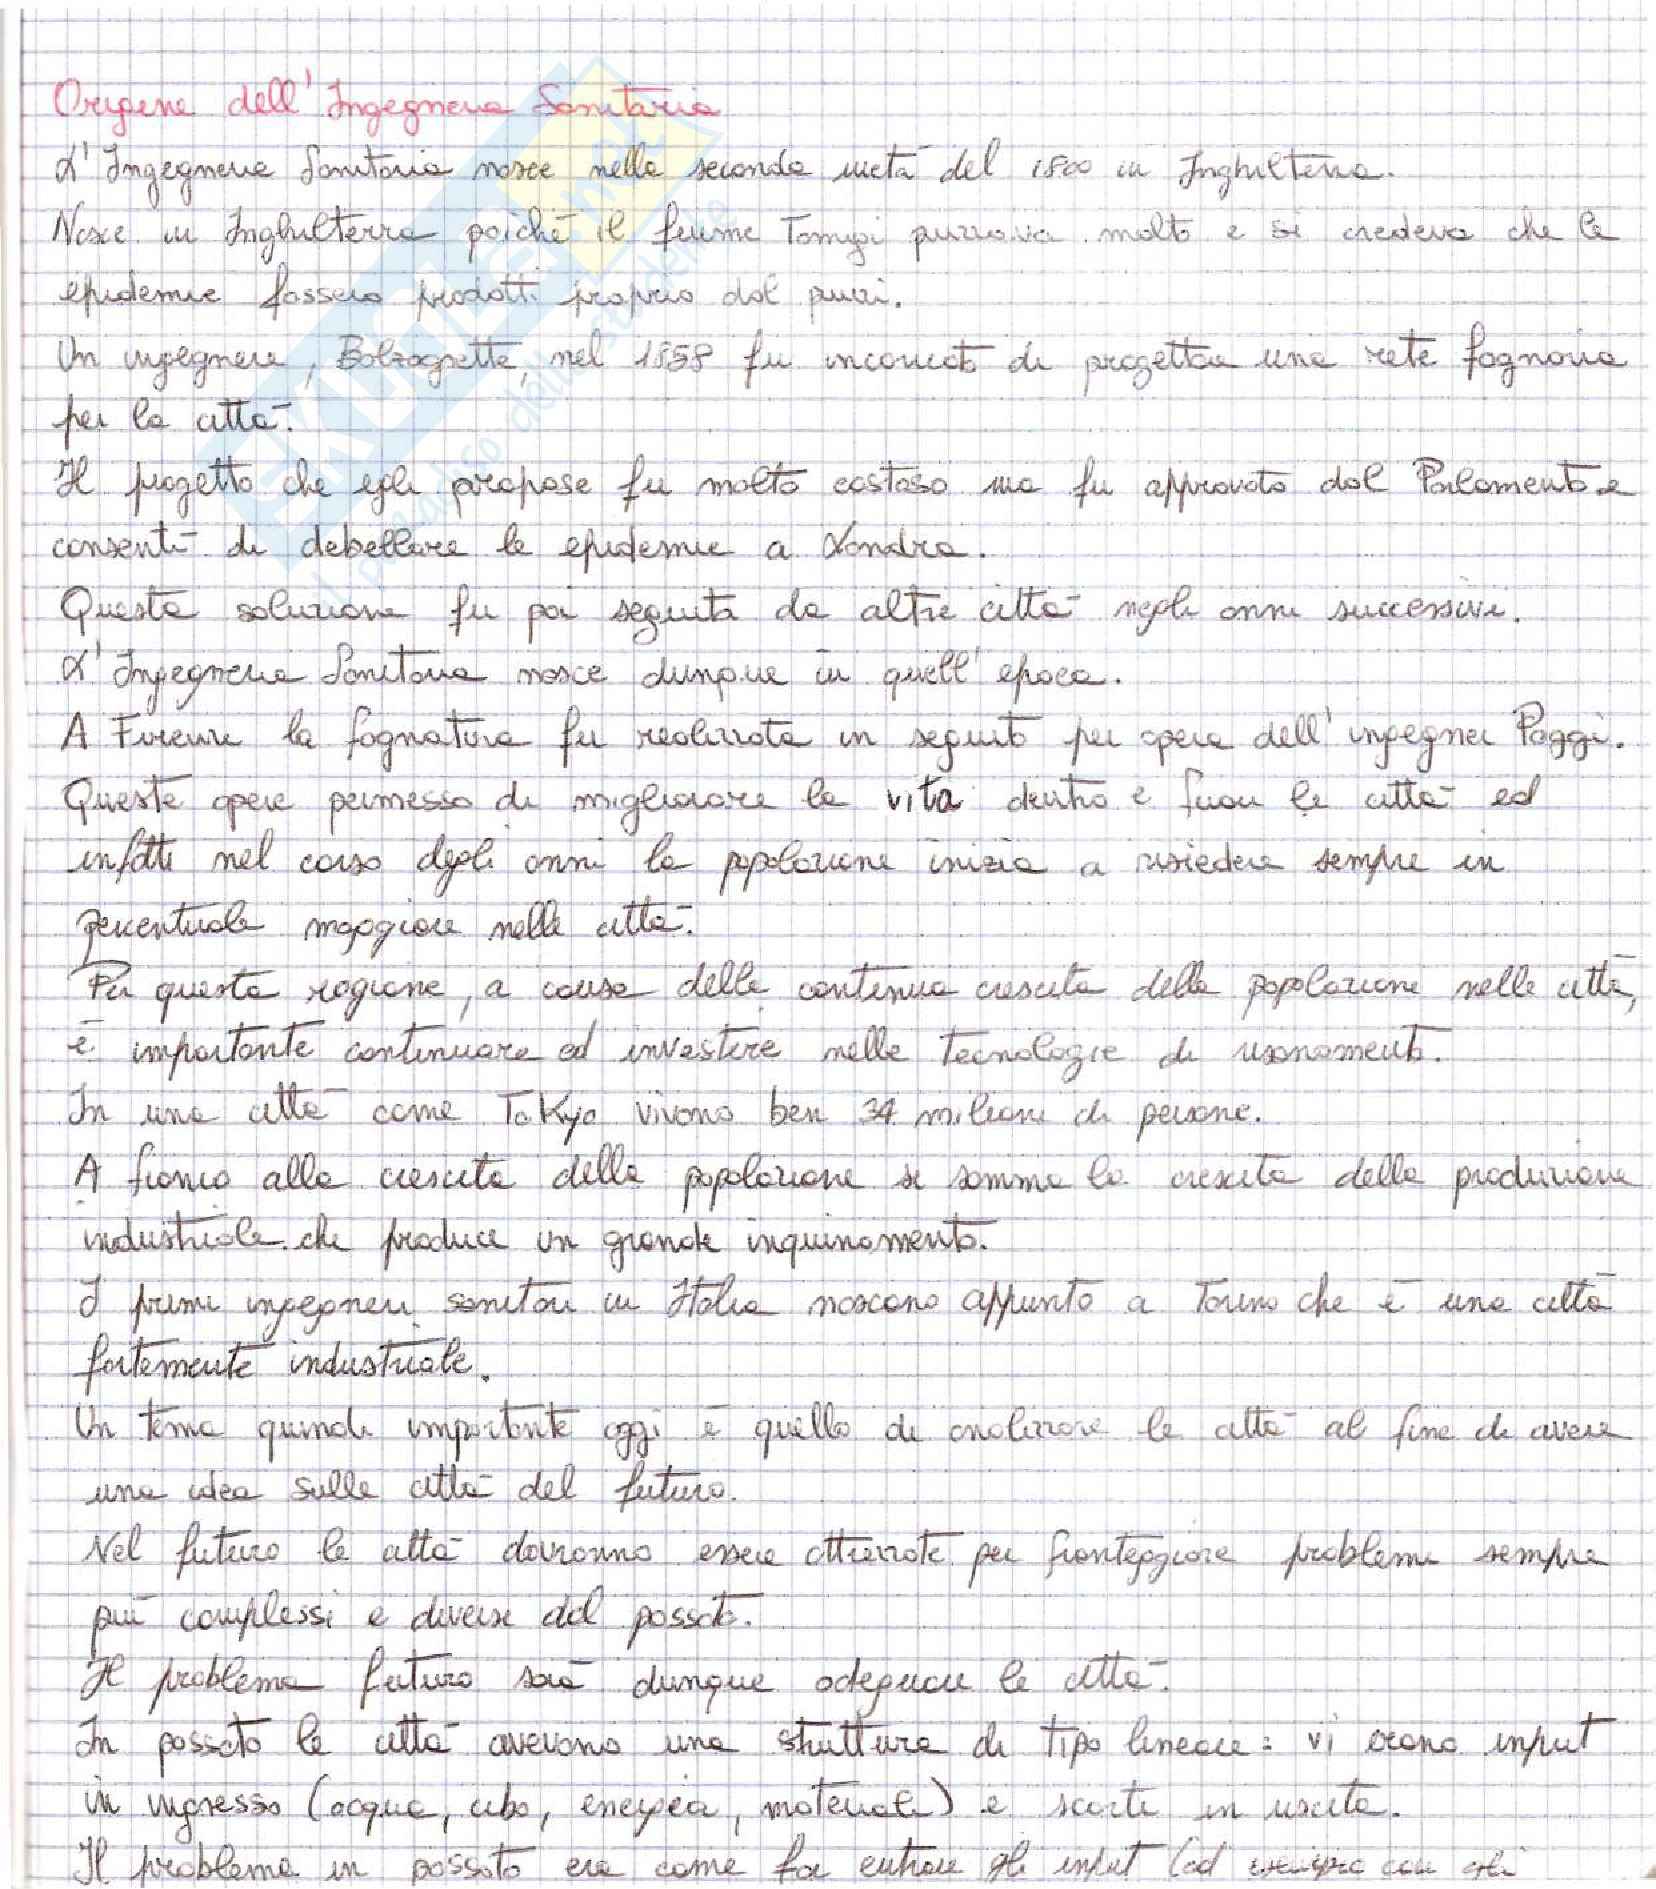 Origine dell'Ingegneria Sanitaria
L'Ingegneria Sanitaria nasce nella seconda metà del 1800 in Inghilterra.
Nasce in Inghilterra poiché il fiume Tamigi puzzava molto e si credeva che le
epidemie fossero prodotti proprio dal puzzi.
Un ingegnere, Bolzagnette, nel 1858 fu incaricato di progettare una rete fognaria
per la città.
Il progetto che egli propose fu molto costoso ma fu approvato dal Parlamento e
consentì di debellare le epidemie a Londra.
Questa soluzione fu poi seguita da altre città negli anni successivi.
L'Ingegneria Sanitaria nasce dunque in quell'epoca.
A Firenze la fognatura fu realizzata in seguito per opera dell'ingegner Poggi.
Queste opere permesso di migliorare la vita dentro e fuori le città ed
infatti nel corso degli anni la popolazione inizia a risiedere sempre in
percentuale maggiore nelle città.
Per questa ragione, a causa della continua crescita della popolazione nelle città,
è importante continuare ed investire nelle tecnologie di risanamento.
In una città come Tokyo vivono ben 34 milioni di persone.
A fianco alla crescita della popolazione si somma la crescita della produzione
industriale che produce un grande inquinamento.
I primi ingegneri sanitari in Italia nascono appunto a Torino che è una città
fortemente industriale.
Un tema quindi importante oggi è quello di analizzare le città al fine di avere
una idea sulle città del futuro.
Nel futuro le città dovranno essere attrezzate per fronteggiare problemi sempre
più complessi e diversi dal passato.
Il problema futuro sarà dunque adeguare le città.
In passato le città avevano una struttura di tipo lineare: vi erano input
in ingresso (acqua, cibo, energia, materiali) e scarti in uscita.
Il problema in passato era come far entrare gli input (ad esempio con gli
SKUOLA.net
il paradiso dello studente